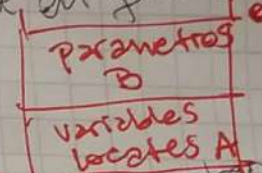 parametros
B
variables
locales A